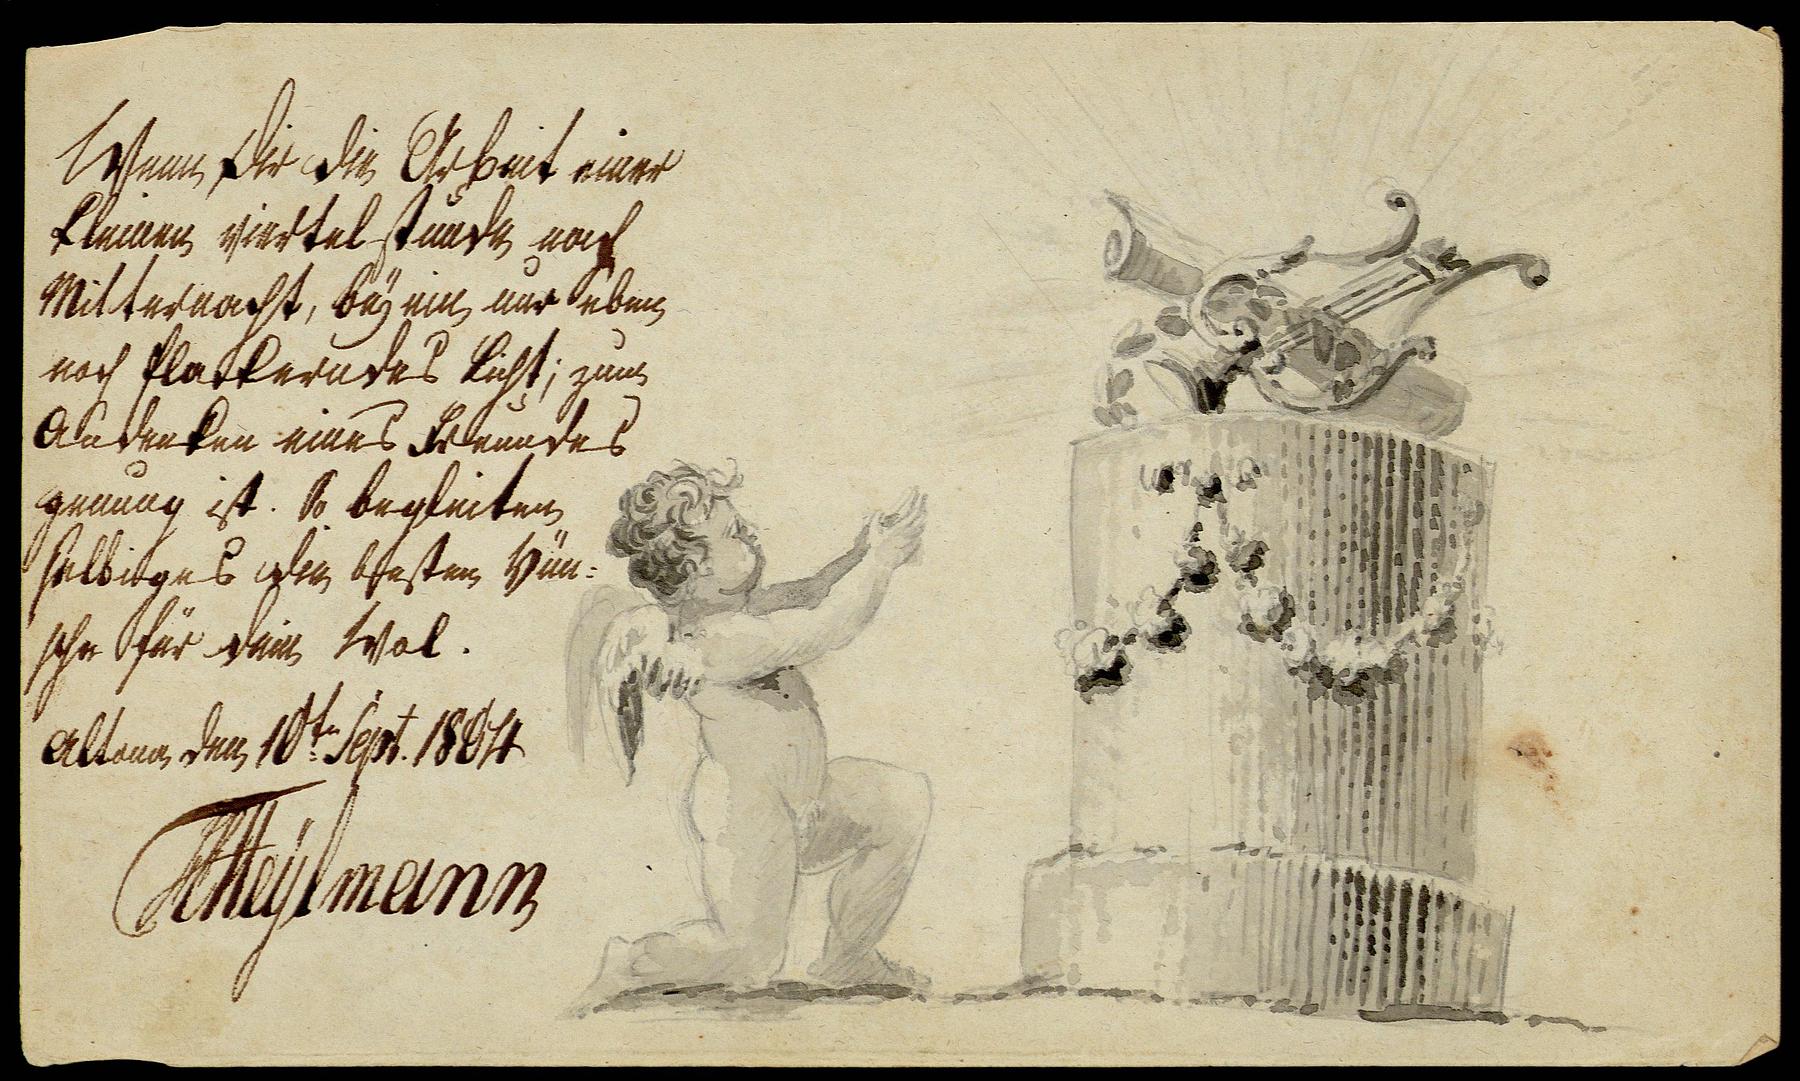 Wenn Dir die Arbeit einer
kleinen viertel stunde nach
Mitternacht, beÿ ein nur eben
noch flackerndes Licht; zum
Andenken eines Freundes
genung ist. So begleiten
selbiges die besten Wün=
sche für dein Wol.
Altona den 10tn Sept. 1804
Heÿlmann